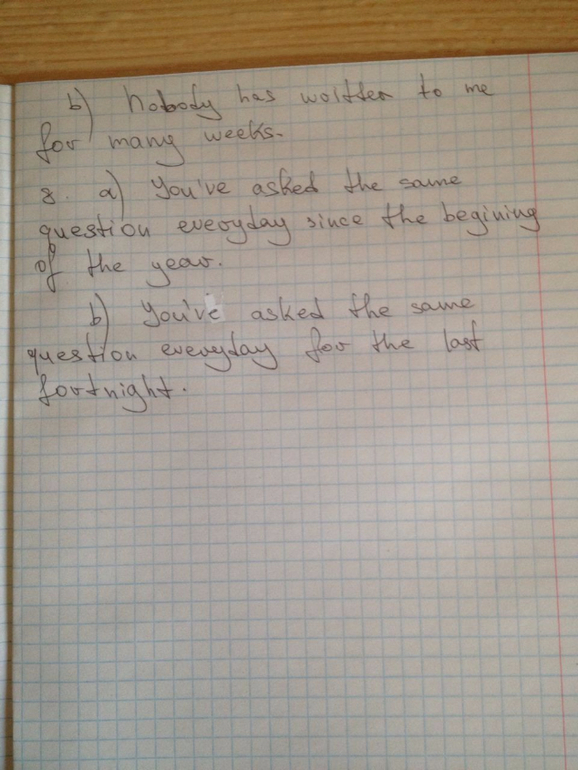 b) Nobody has written to me
for many weeks.
8. a) You've asked the same
question everyday since the begining
of the year.
b) You've asked the same
question everyday for the last
fortnight.